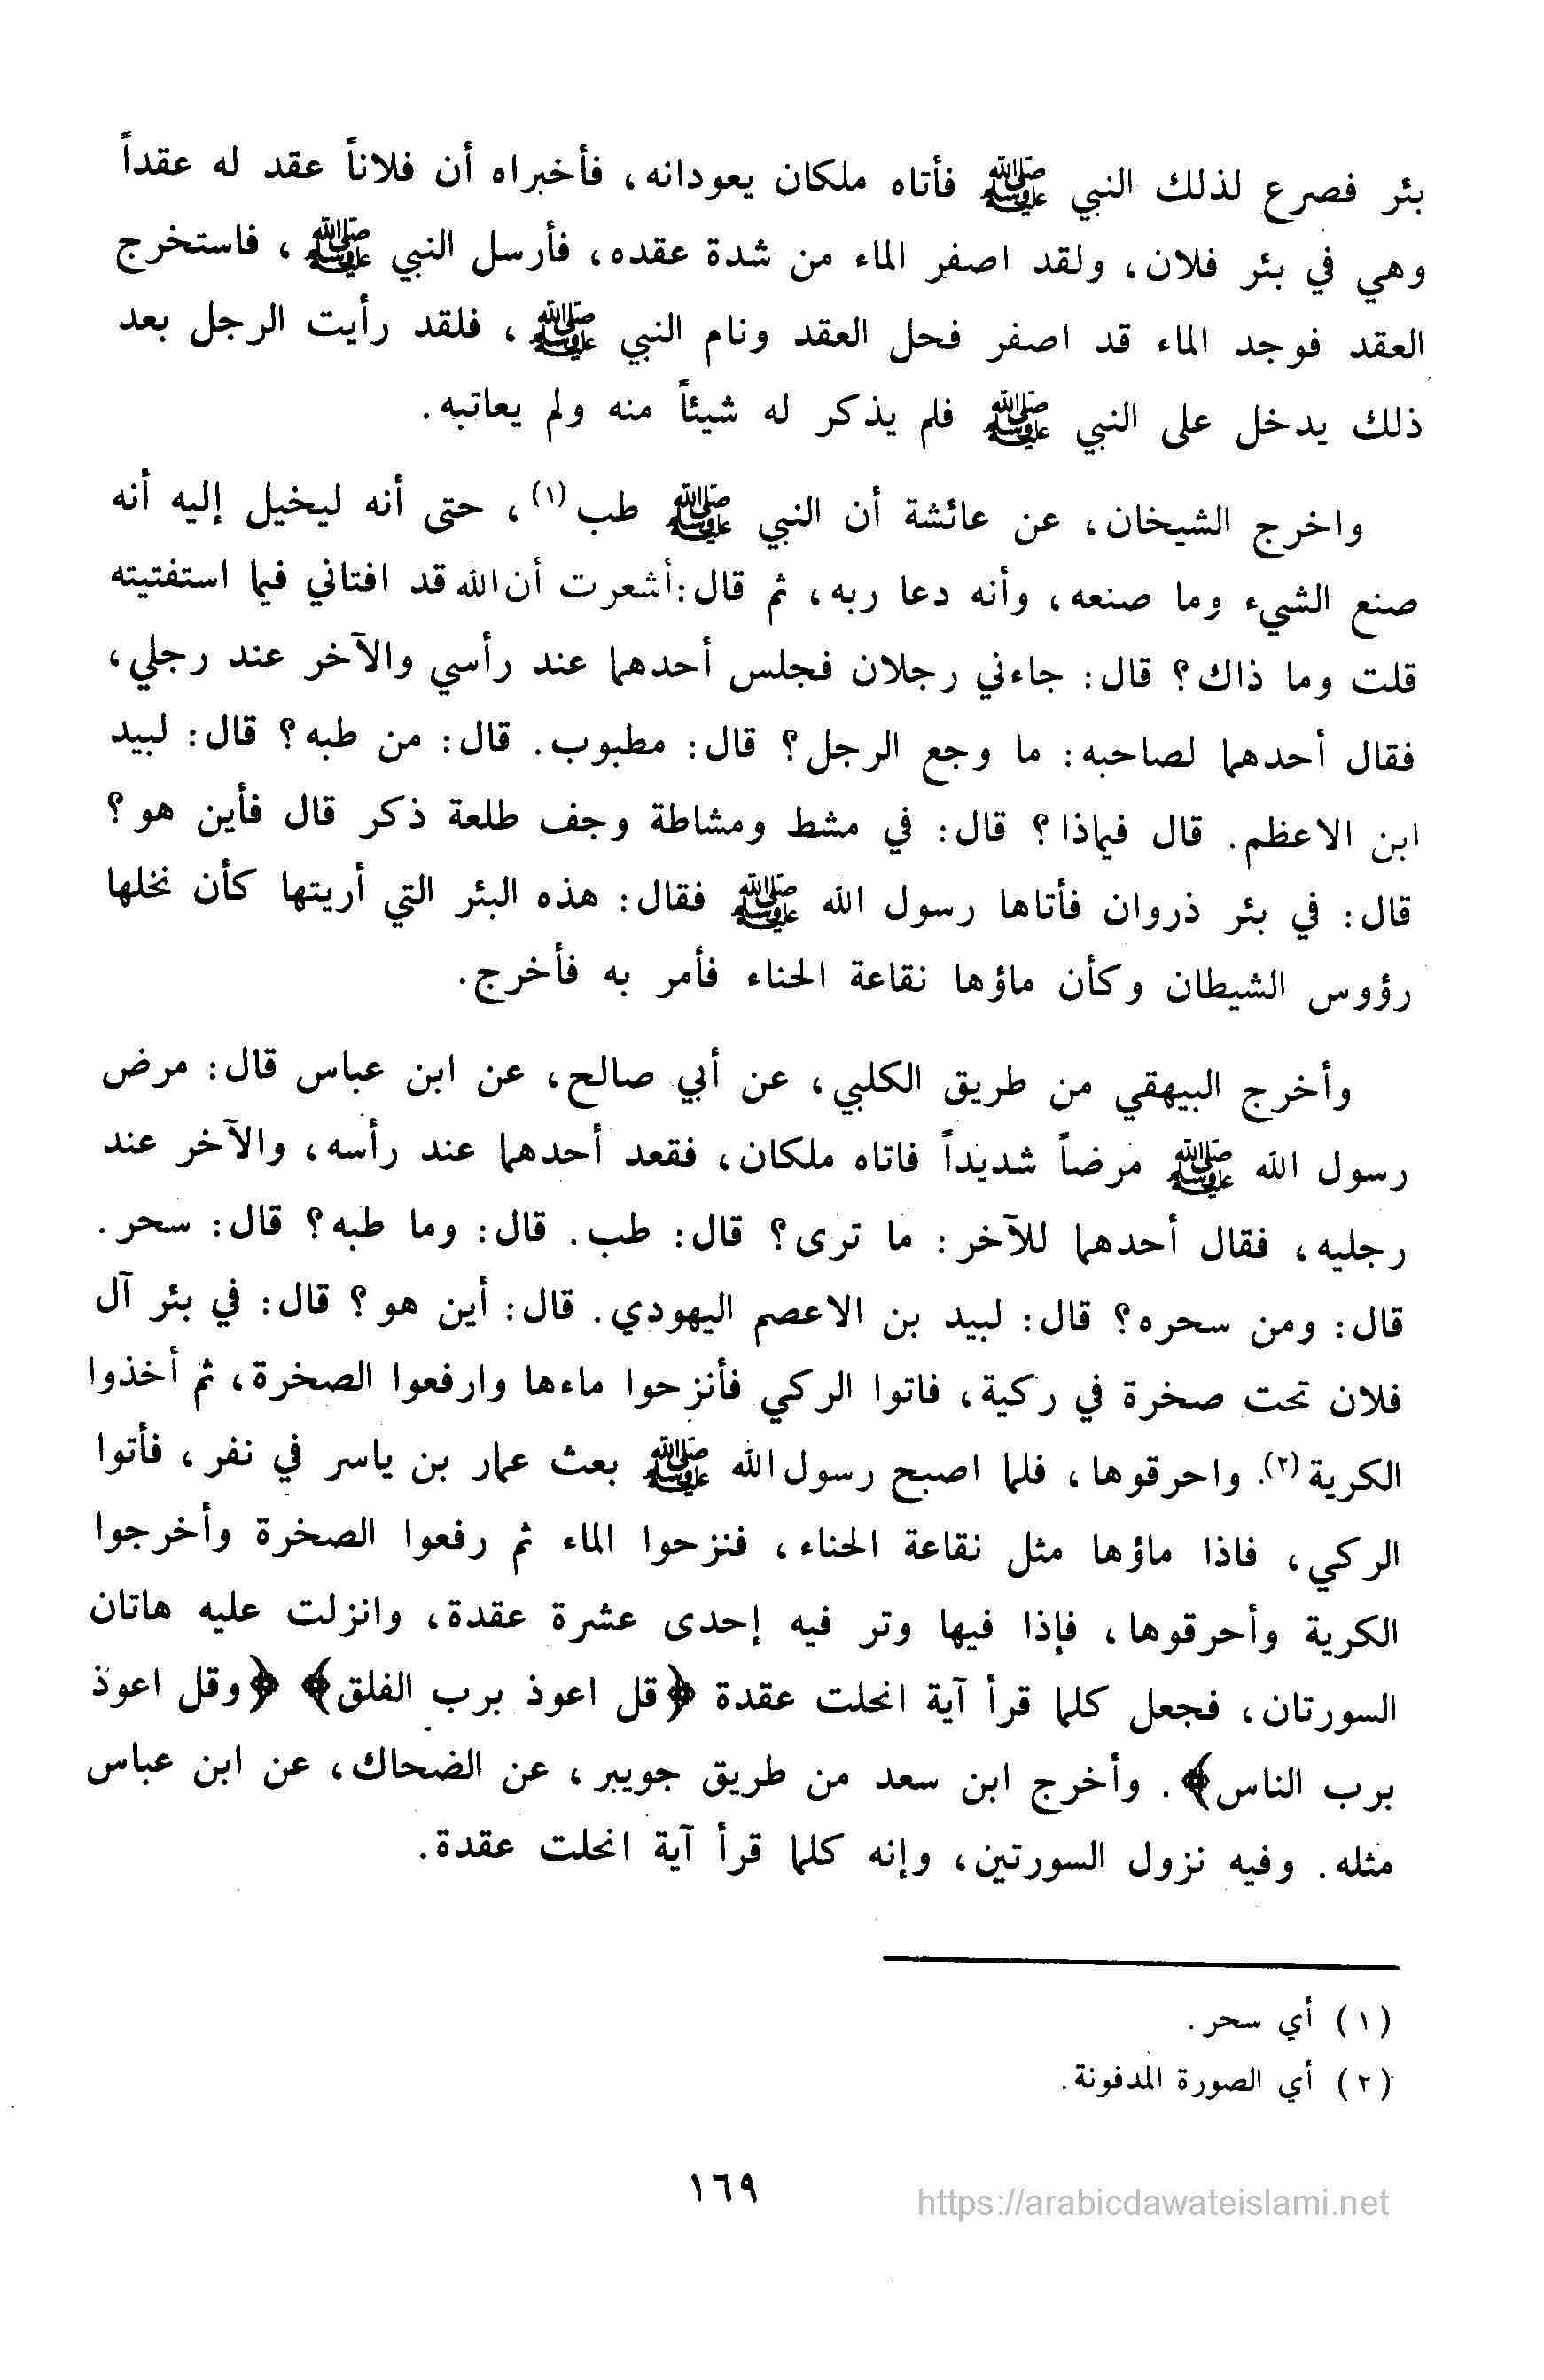 بئر فصرع لذلك النبي ﷺ فأتاه ملكان يعودانه، فأخبراه أن فلاناً عقد له عقداً
وهي في بئر فلان، ولقد اصفر الماء من شدة عقده، فأرسل النبي ﷺ، فاستخرج
العقد فوجد الماء قد اصفر فحل العقد ونام النبي ﷺ، فلقد رأيت الرجل بعد
ذلك يدخل على النبي ﷺ فلم يذكر له شيئاً منه ولم يعاتبه.
واخرج الشيخان، عن عائشة أن النبي ﷺ طب (١)، حتى أنه ليخيل إليه أنه
صنع الشيء وما صنعه، وأنه دعا ربه، ثم قال: أشعرت أن الله قد افتاني فيما استفتيته
قلت وما ذاك؟ قال: جاءني رجلان فجلس أحدهما عند رأسي والآخر عند رجلي،
فقال أحدهما لصاحبه: ما وجع الرجل؟ قال: مطبوب. قال: من طبه؟ قال: لبيد
ابن الاعظم. قال فيماذا؟ قال: في مشط ومشاطة وجف طلعة ذكر قال فأين هو؟
قال: في بئر ذروان فأتاها رسول الله ﷺ فقال: هذه البئر التي أريتها كأن نخلها
رؤوس الشيطان وكأن ماؤها نقاعة الحناء فأمر به فأخرج.
وأخرج البيهقي من طريق الكلبي، عن أبي صالح، عن ابن عباس قال: مرض
رسول الله ﷺ مرضاً شديداً فاتاه ملكان، فقعد أحدهما عند رأسه، والآخر عند
رجليه، فقال أحدهما للآخر: ما ترى؟ قال: طب. قال: وما طبه؟ قال: سحر.
قال: ومن سحره؟ قال: لبيد بن الاعصم اليهودي. قال: أين هو؟ قال: في بئر آل
فلان تحت صخرة في ركية، فاتوا الركي فأنزحوا ماءها وارفعوا الصخرة، ثم أخذوا
الكرية (٢). واحرقوها، فلما اصبح رسول الله ﷺ بعث عمار بن ياسر في نفر، فأتوا
الركي، فاذا ماؤها مثل نقاعة الحناء، فنزحوا الماء ثم رفعوا الصخرة وأخرجوا
الكرية وأحرقوها، فإذا فيها وتر فيه إحدى عشرة عقدة، وانزلت عليه هاتان
السورتان، فجعل كلما قرأ آية انحلت عقدة ﴿قل اعوذ برب الفلق﴾ ﴿وقل اعوذ
برب الناس﴾. وأخرج ابن سعد من طريق جويبر، عن الضحاك، عن ابن عباس
مثله. وفيه نزول السورتين، وإنه كلما قرأ آية انحلت عقدة.
(١) أي سحر.
(٢) أي الصورة المدفونة.
١٦٩
https://arabicdawateislami.net